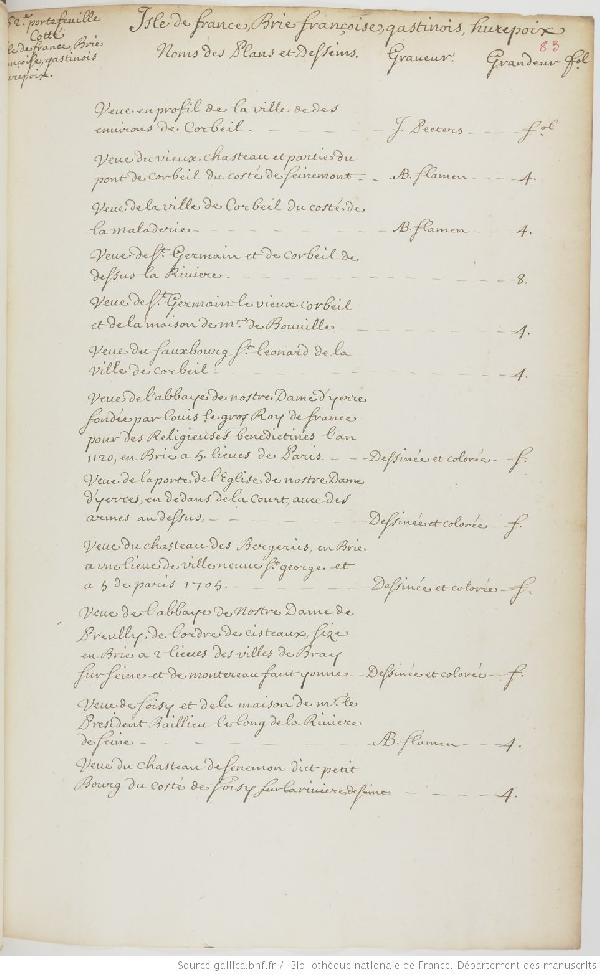 52e. portefeuille
Cotté
Isle de france, Brie françoise, gastinois, hurepoix
83
Noms des Plans et Desseins. Graveur. Grandeur fol.
Veue en profil de la ville de des
environs de Corbeil. J. Peeters fol.
Veue du vieux chasteau et partie du
pont de Corbeil du costé de seinemont AB. flamen 4.
Veue de la ville de Corbeil du costé de
la maladerie AB flamen 4.
Veue de St. Germain et de corbeil de
dessus la Riviere. 8.
Veue de St. Germain le vieux corbeil
et de la maison de mr. de Bouville 4.
Veue du fauxbourg St. leonard de la
ville de corbeil. 4.
Veue de l'abbaye de nostre Dame d'yerre
fondée par louis le gros Roy de france
pour des Religieuses benedictines l'an
1120, en Brie a 5 lieues de Paris. Dessinée et colorée f.
Veue de la porte de l'Eglise de nostre Dame
d'yerres, en dedans de la Court, avec des
armes au dessus, Dessinée et colorée f.
Veue du chasteau des Bergeries, en Brie
a une lieue de villeneuve St. george et
a 5 de paris 1705. Dessinée et colorée f.
Veue de l'abbaye de Nostre Dame de
Preully, de l'ordre de cisteaux, size
en Brie a 2 lieues des villes de Bray
sur seine et de montereau faut yonne Dessinée et colorée f.
Veue de soisy et de la maison de mr. le
President Baillieu le long de la Riviere
de seine AB. flamen 4.
Veue du chasteau de senemon dict petit
Bourg du costé de soisy sur la riviere de seine 4.
Source gallica.bnf.fr / Bibliothèque nationale de France. Département des manuscrits